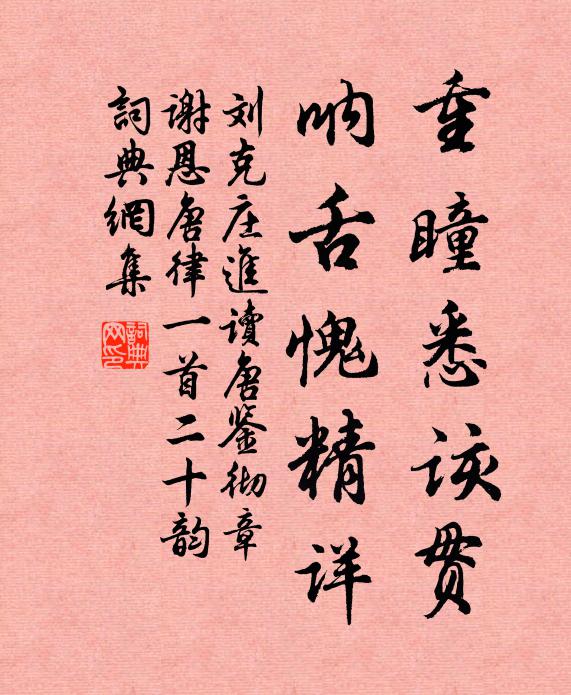 重瞳悉该贯
呐舌愧精详
刘克庄進讀唐鉴彻章
谢恩唐律一首二十韵
詞典網集
詞典网印